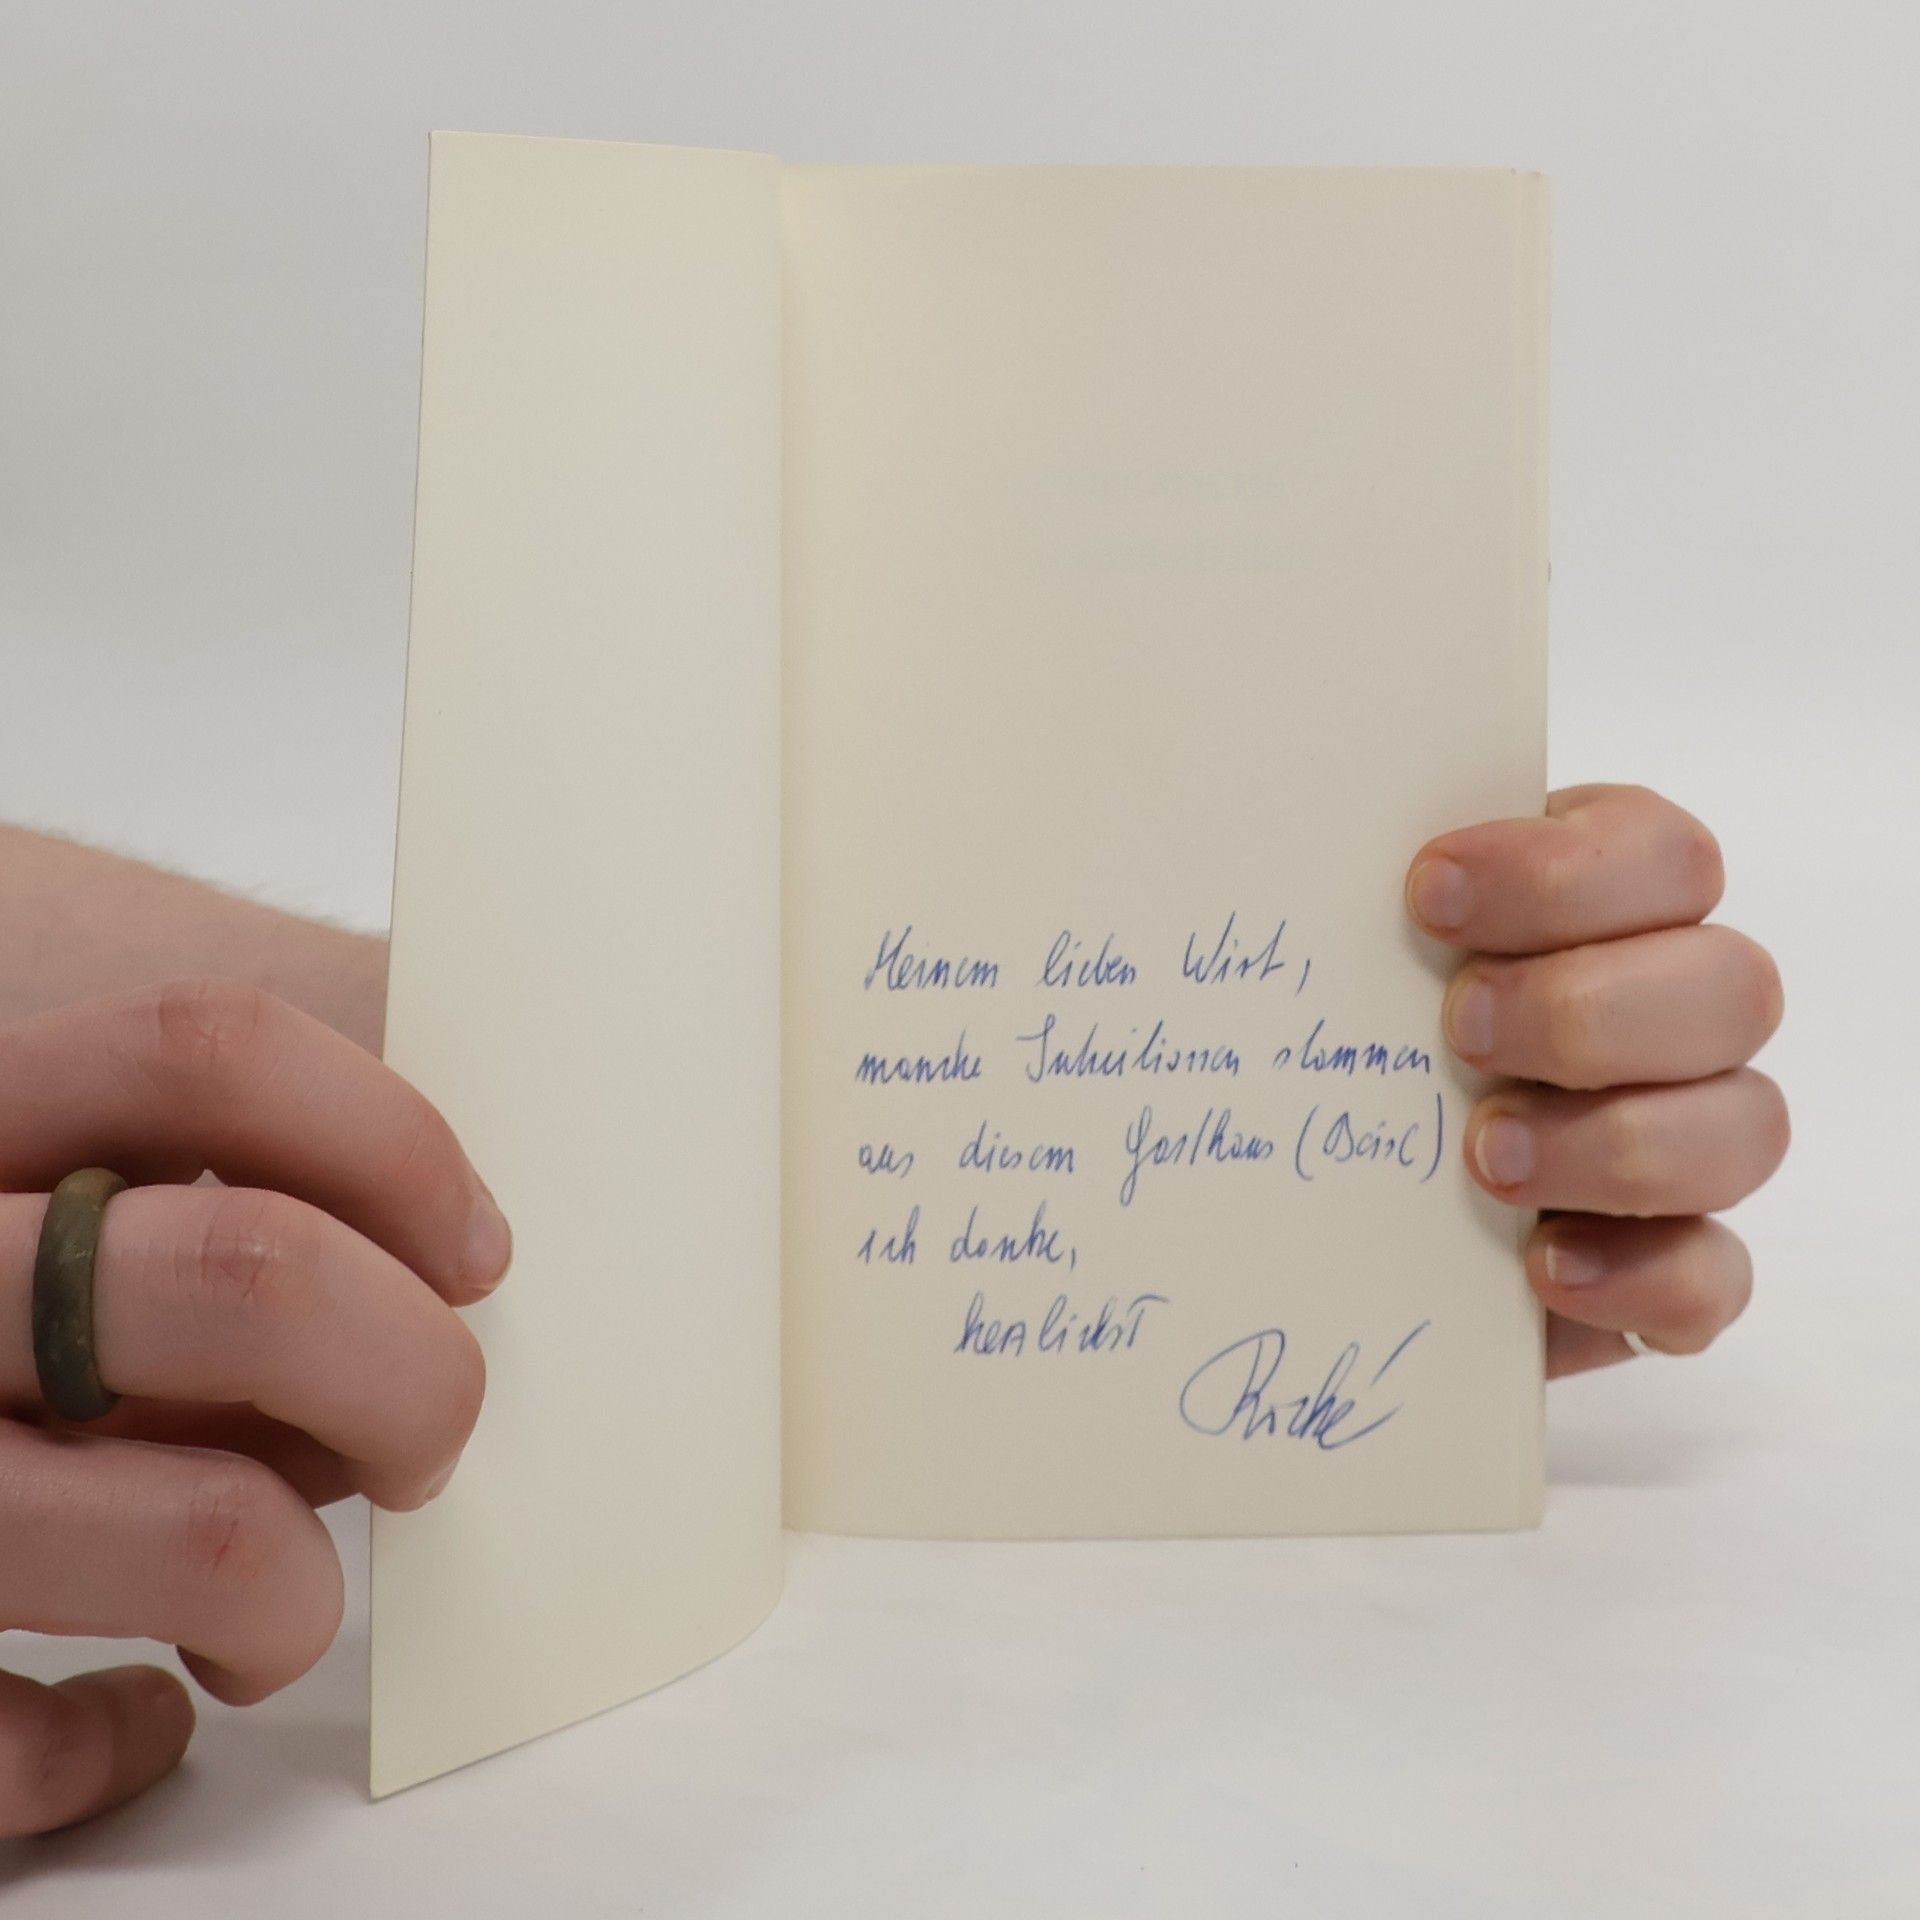 Meinem lieben Wirt,
manche Intuitionen stammen
aus diesem Gasthaus (Beisl)
ich danke,
herzlichst
Roché